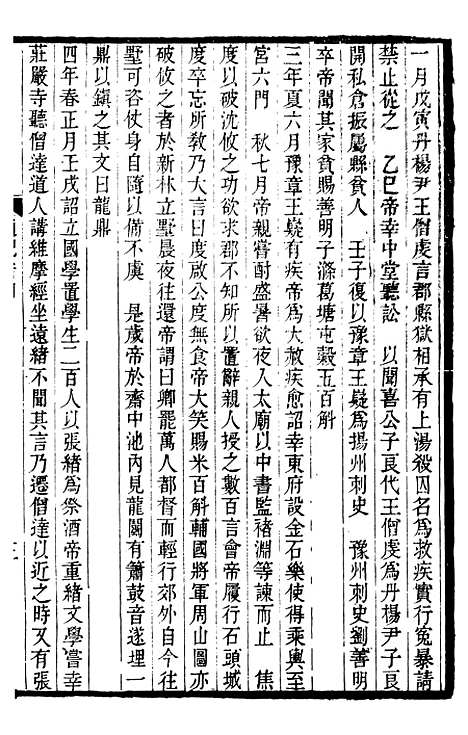 一月戊寅丹楊尹王僧虔言郡縣獄相承有上湯殺囚名爲救疾實行寃暴請
禁止從之　乙巳帝幸中堂聽訟　以聞喜公子良代王僧虔爲丹楊尹子良
開私倉振屬縣貧人　壬子復以豫章王嶷爲揚州刺史　豫州刺史劉善明
卒帝聞其家貧賜善明子滌葛塘屯穀五百斛
三年夏六月豫章王嶷有疾帝爲大赦疾愈詔幸東府設金石樂使得乘輿至
宮六門　秋七月帝親嘗酎盛暑欲夜入太廟以中書監褚淵等諫而止　焦
度以破沈攸之功欲求郡不知所以置辭親人授之數百言會帝履行石頭城
度卒忘所教乃大言曰度啟公度無食帝大笑賜米百斛輔國將軍周山圖亦
破攸之者於新林立墅晨夜往還帝謂曰卿罷萬人都督而輕行郊外自今往
墅可咨仗身自隨以備不虞　是歲帝於齋中池內見龍鬬有簫鼓音遂埋一
鼎以鎮之其文曰龍鼎
四年春正月壬戌詔立國學置學生二百人以張緒爲祭酒帝重緒文學嘗幸
莊嚴寺聽僧達道人講維摩經坐遠緒不聞其言乃遷僧達以近之時又有張